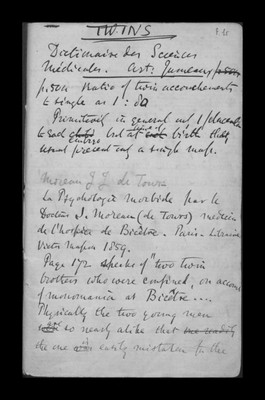 TWINS
Dictionnaire des Sciences
Médicales. Art: Jumeaux
p.500 Ratio of twin accouchements
to single as 1 : 80
Primitively in general only 1 placenta
to each but at birth they
usual present only a single mass.
Moreau J J. de Tours
La Psychologie morbide par le
Docteur J. Moreau (de Tours) médecin
de l'hospice de Bicêtre. Paris. Librairie
Victor Masson 1859.
Page 172 speaks of "two twin
brothers who were confined, on account
of monomania at Bicêtre....
Physically the two young men
so nearly alike that one readily
the one is easily mistaken for the